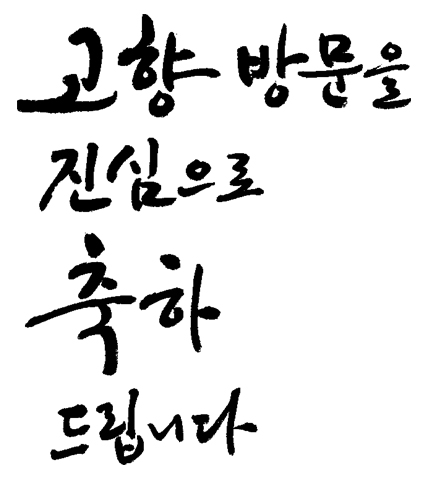 고향 방문을
진심으로
축하
드립니다